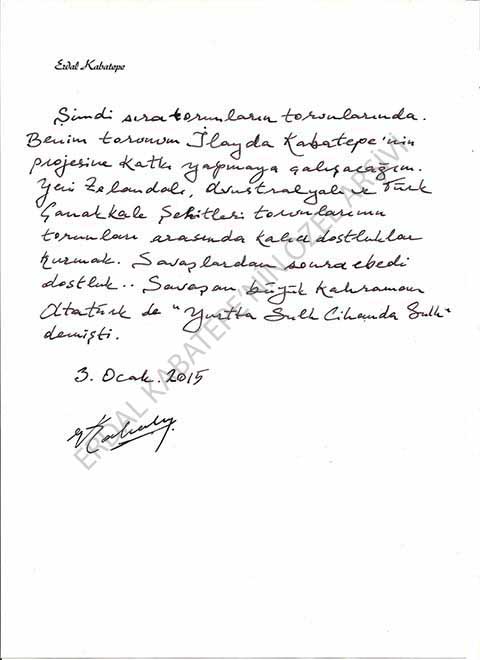 Erdal Kabatepe
Şimdi sıra torunların torunlarında.
Benim torunum İlayda Kabatepe'nin
projesine katkı yapmaya çalışacağım.
Yeni Zelandalı, Avustralyalı ve Türk
Çanakkale Şehitleri torunlarının
torunları arasında kalıcı dostluklar
kurmak. Savaşlardan sonra ebedi
dostluk.. Savaşan büyük Kahraman
Atatürk de "Yurtta Sulh Cihanda Sulh"
demişti.
3. Ocak. 2015
ERDAL KABATEPE'NİN ÖZEL ARŞİVİ